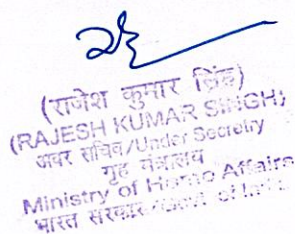 (राजेश कुमार सिंह)
(RAJESH KUMAR SINGH)
अवर सचिव/Under Secretry
गृह मंत्रालय
Ministry of Home Affairs
भारत सरकार/Govt. of India